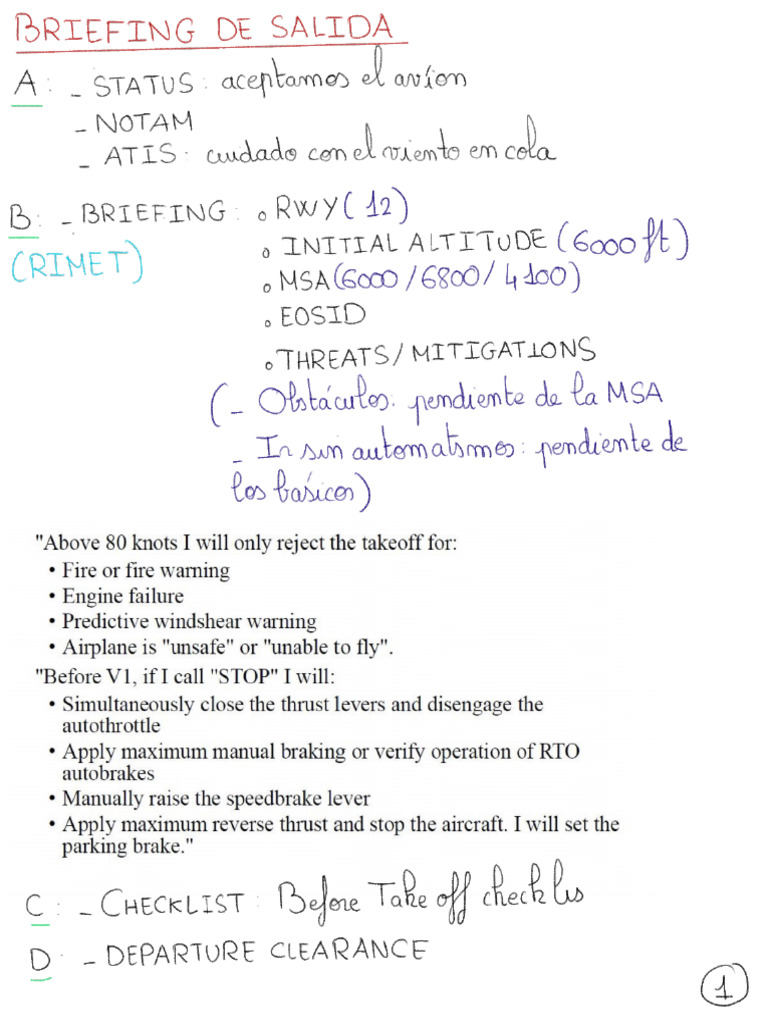 BRIEFING DE SALIDA
A: - STATUS: aceptamos el avíon
- NOTAM
- ATIS: cuidado con el viento en cola
B: - BRIEFING: • RWY (12)
(RIMET) • INITIAL ALTITUDE (6000 ft)
• MSA (6000/6800/4100)
• EOSID
• THREATS/MITIGATIONS
(- Obstáculos: pendiente de la MSA
- Ir sin automatismos: pendiente de
los basicos)
"Above 80 knots I will only reject the takeoff for:
• Fire or fire warning
• Engine failure
• Predictive windshear warning
• Airplane is "unsafe" or "unable to fly".
"Before V1, if I call "STOP" I will:
• Simultaneously close the thrust levers and disengage the
autothrottle
• Apply maximum manual braking or verify operation of RTO
autobrakes
• Manually raise the speedbrake lever
• Apply maximum reverse thrust and stop the aircraft. I will set the
parking brake."
C: - CHECKLIST: Before Take off checklis
D: - DEPARTURE CLEARANCE
1